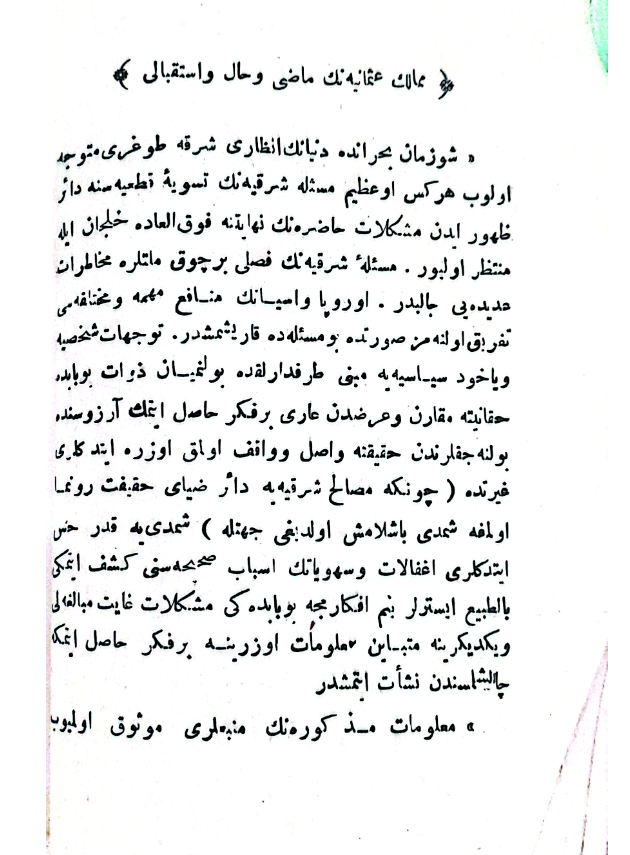 ﴿ ممالك عثمانیه‌نك ماضی وحال واستقبالی ﴾
« شوزمان بحرانده دنیانك انظاری شرقه طوغری متوجه
اولوب هركس اوعظیم مسئله شرقیه‌نك تسویهٔ قطعیه‌سنه دائر
ظهور ایدن مشكلات حاضره‌نك نهایتنه فوق العاده خلجان ایله
منتظر اولیور . مسئلهٔ شرقیه‌نك فصلی برچوق ملتلره مخاطرات
عدیده‌یی جالبدر . اوروپا واسیانك منافع مهمه ومختلفه‌سی
تفریق اولنه‌مز صورتده بومسئله‌ده قاریشمشدر. توجهات شخصیه
ویاخود سیاسیه‌یه مبنی طرفدارلقده بولنمیان ذوات بوبابده
حقانیته مقارن وغرضدن عاری برفكر حاصل ایتمك آرزوسنده
بولنه‌جقلرندن حقیقته واصل وواقف اولمق اوزره ایتدكلری
غیرتده ( چونكه مصالح شرقیه‌یه دائر ضیای حقیقت رونما
اولمغه شمدی باشلامش اولدیغی جهتله ) شمدی‌یه قدر حس
ایتدكلری اغفالات وسهویاتك اسباب صحیحه‌سنی كشف ایتمكی
بالطبیع ایسترلر بنم افكارمجه بوبابده‌كی مشكلات غایت مبالغه‌لی
ویكدیكرینه متباین معلومات اوزرینه برفكر حاصل ایتمكه
چالیشلمسندن نشأت ایتمشدر
« معلومات مذكوره‌نك منبعلری موثوق اولمیوب